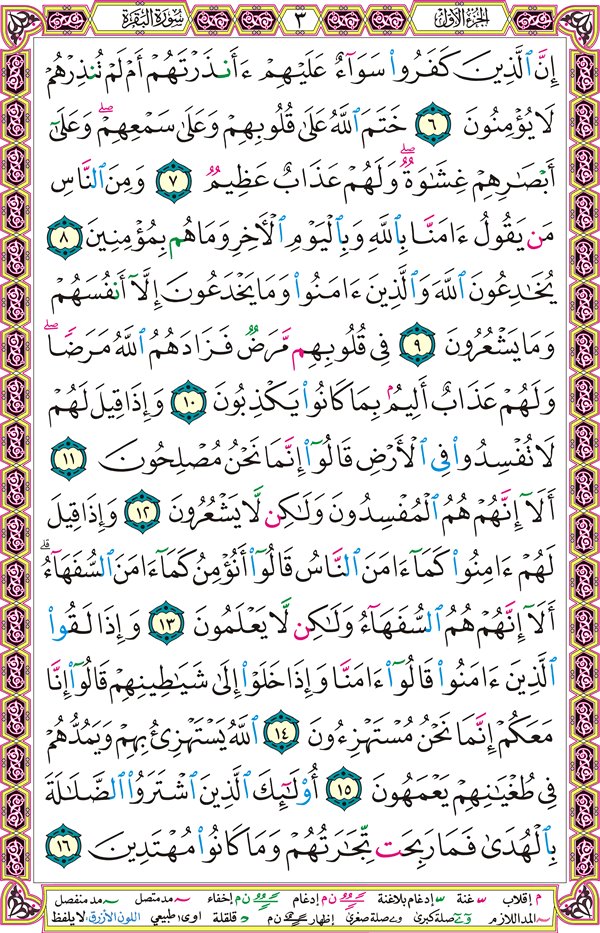 الجزء الأول
٣
سورة البقرة
إِنَّ ٱلَّذِينَ كَفَرُوا۟ سَوَآءٌ عَلَيْهِمْ ءَأَنذَرْتَهُمْ أَمْ لَمْ تُنذِرْهُمْ
لَا يُؤْمِنُونَ ٦ خَتَمَ ٱللَّهُ عَلَىٰ قُلُوبِهِمْ وَعَلَىٰ سَمْعِهِمْ ۖ وَعَلَىٰٓ
أَبْصَٰرِهِمْ غِشَٰوَةٌ ۖ وَلَهُمْ عَذَابٌ عَظِيمٌ ٧ وَمِنَ ٱلنَّاسِ
مَن يَقُولُ ءَامَنَّا بِٱللَّهِ وَبِٱلْيَوْمِ ٱلْأَخِرِ وَمَا هُم بِمُؤْمِنِينَ ٨
يُخَٰدِعُونَ ٱللَّهَ وَٱلَّذِينَ ءَامَنُوا۟ وَمَا يَخْدَعُونَ إِلَّآ أَنفُسَهُمْ
وَمَا يَشْعُرُونَ ٩ فِى قُلُوبِهِم مَّرَضٌ فَزَادَهُمُ ٱللَّهُ مَرَضًا ۖ
وَلَهُمْ عَذَابٌ أَلِيمٌۢ بِمَا كَانُوا۟ يَكْذِبُونَ ١٠ وَإِذَا قِيلَ لَهُمْ
لَا تُفْسِدُوا۟ فِى ٱلْأَرْضِ قَالُوٓا۟ إِنَّمَا نَحْنُ مُصْلِحُونَ ١١
أَلَآ إِنَّهُمْ هُمُ ٱلْمُفْسِدُونَ وَلَٰكِن لَّا يَشْعُرُونَ ١٢ وَإِذَا قِيلَ
لَهُمْ ءَامِنُوا۟ كَمَآ ءَامَنَ ٱلنَّاسُ قَالُوٓا۟ أَنُؤْمِنُ كَمَآ ءَامَنَ ٱلسُّفَهَآءُ ۗ
أَلَآ إِنَّهُمْ هُمُ ٱلسُّفَهَآءُ وَلَٰكِن لَّا يَعْلَمُونَ ١٣ وَإِذَا لَقُوا۟
ٱلَّذِينَ ءَامَنُوا۟ قَالُوٓا۟ ءَامَنَّا وَإِذَا خَلَوْا۟ إِلَىٰ شَيَٰطِينِهِمْ قَالُوٓا۟ إِنَّا
مَعَكُمْ إِنَّمَا نَحْنُ مُسْتَهْزِءُونَ ١٤ ٱللَّهُ يَسْتَهْزِئُ بِهِمْ وَيَمُدُّهُمْ
فِى طُغْيَٰنِهِمْ يَعْمَهُونَ ١٥ أُو۟لَٰٓئِكَ ٱلَّذِينَ ٱشْتَرَوُا۟ ٱلضَّلَٰلَةَ
بِٱلْهُدَىٰ فَمَا رَبِحَت تِّجَٰرَتُهُمْ وَمَا كَانُوا۟ مُهْتَدِينَ ١٦
م إقلاب غنة إدغام بلاغنة ن م إدغام ن م إخفاء مد متصل مد منفصل
المد اللازم صلة كبرى صلة صغرى إظهار ن م قلقلة اوى: طبيعي اللون الأزرق: لا يلفظ